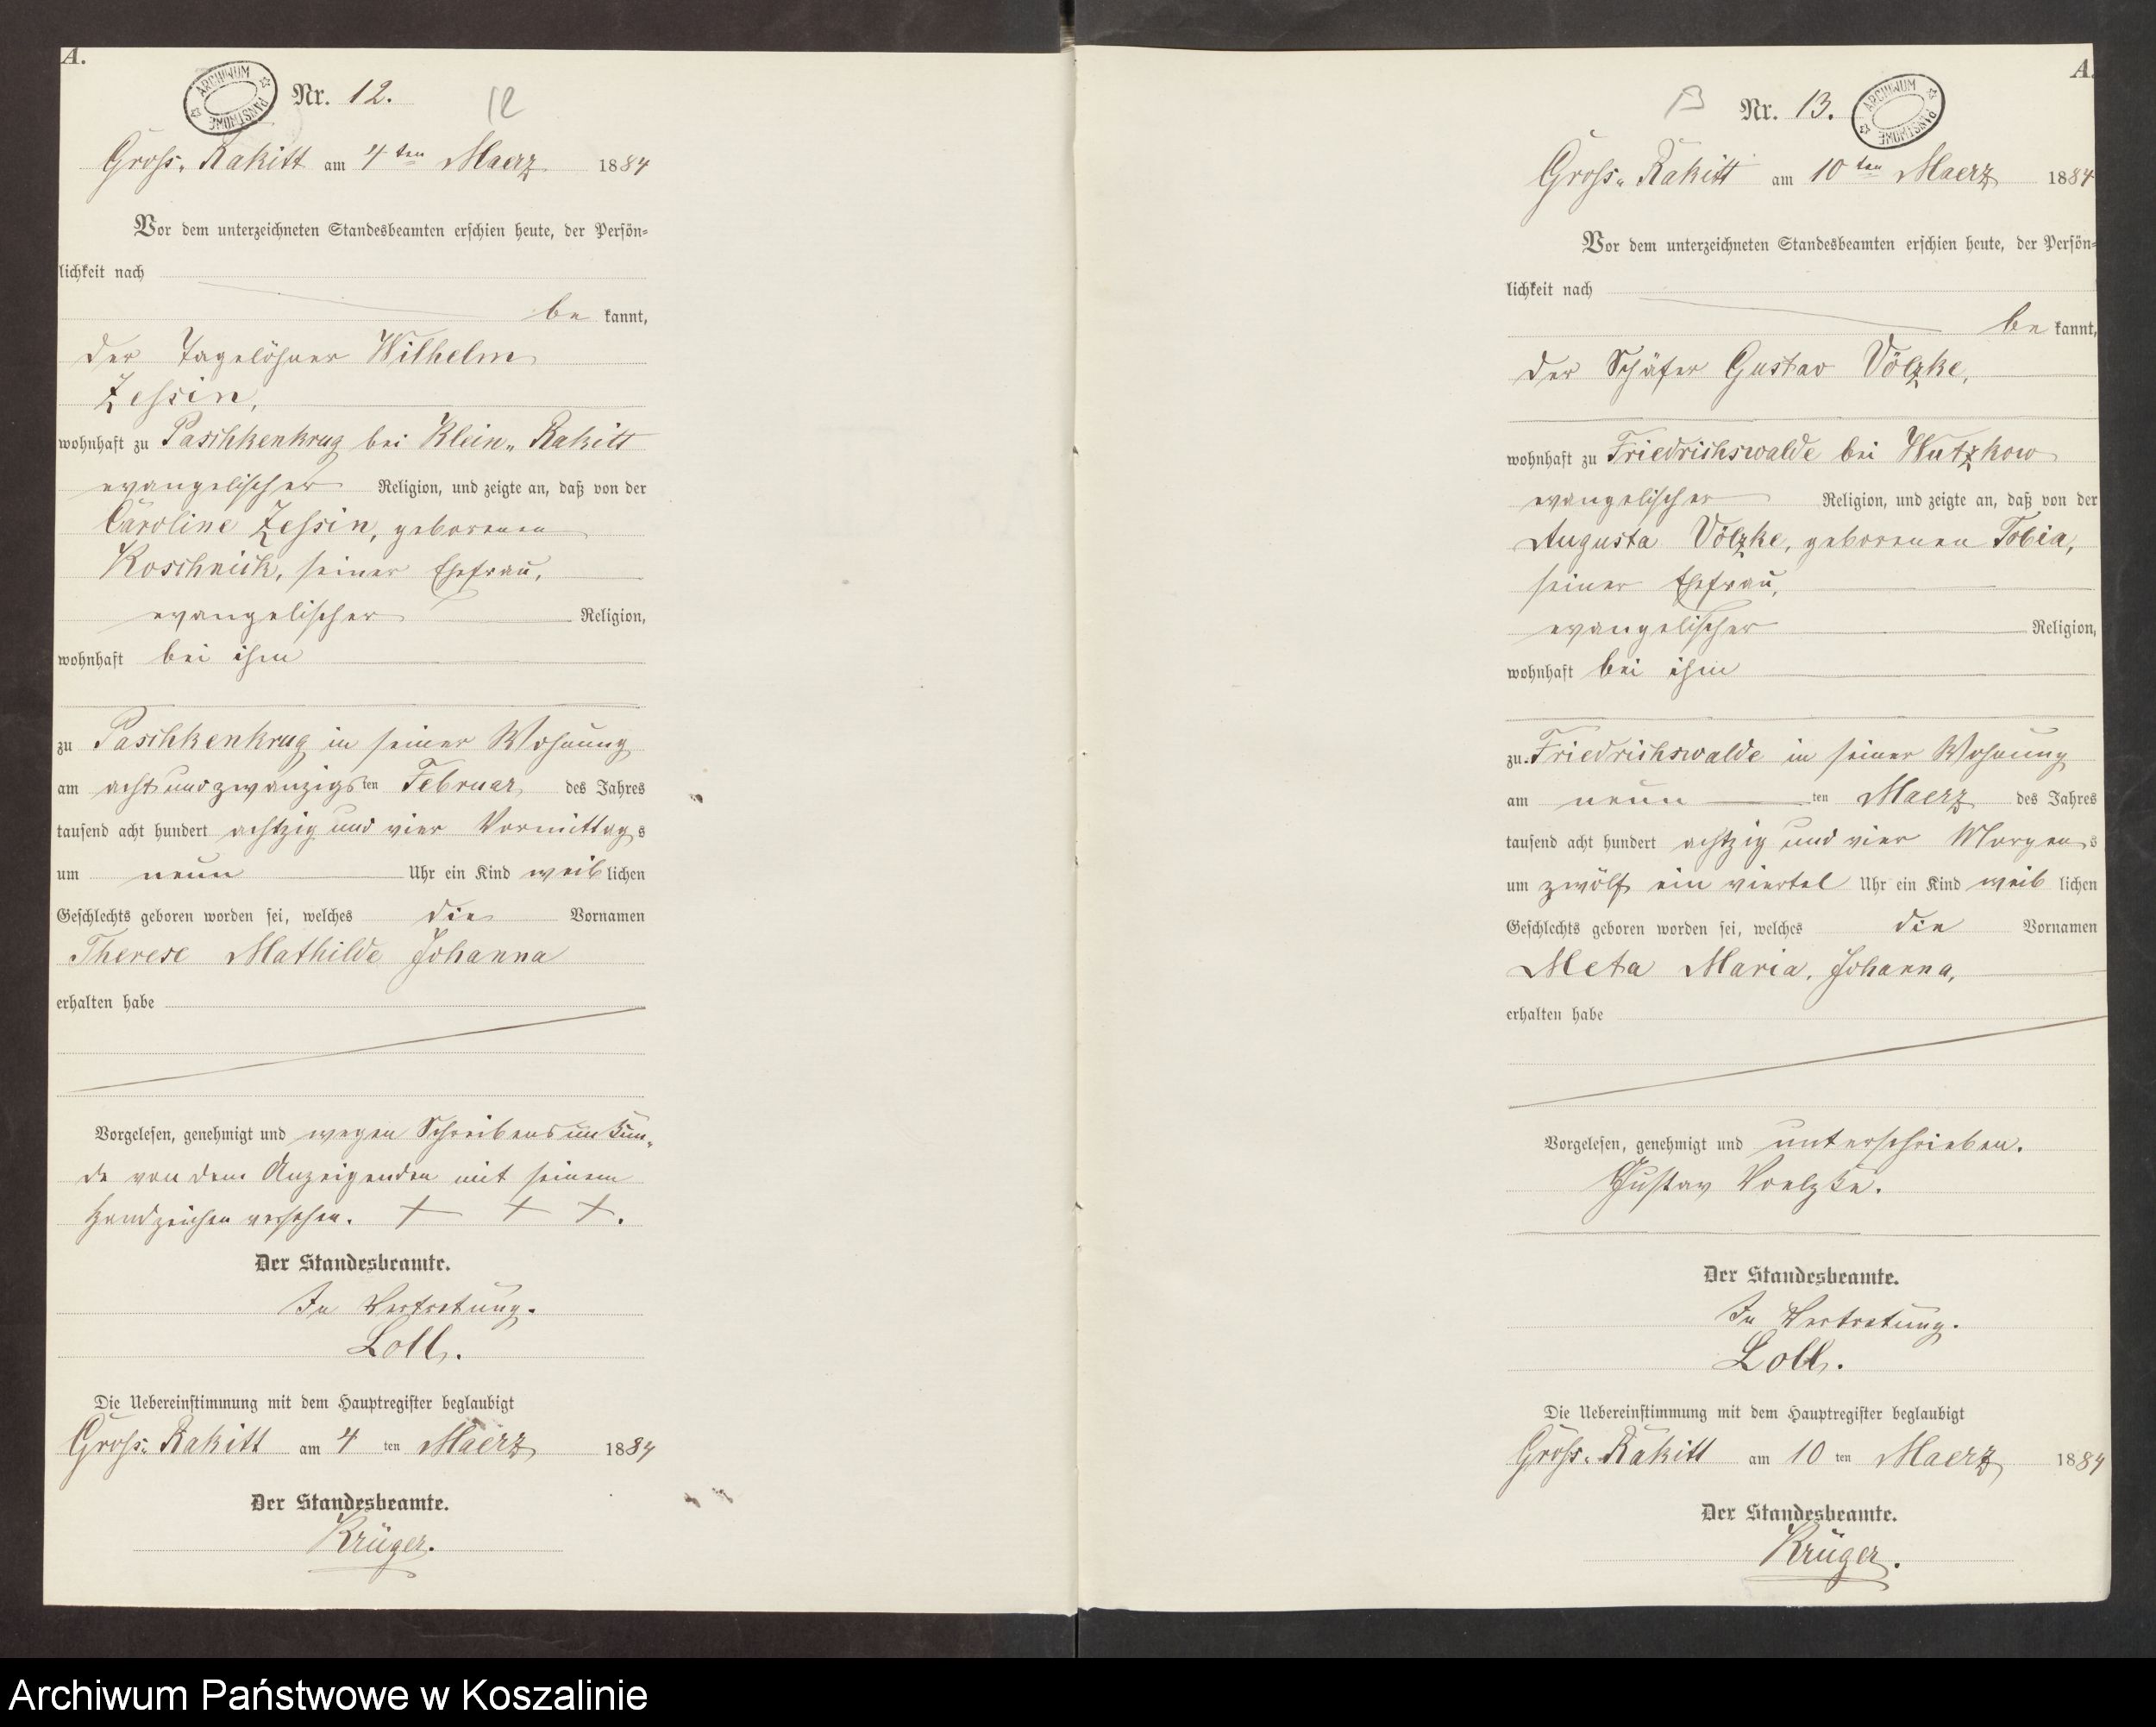 A.
ARCHIWUM PAŃSTWOWE
Nr. 12.
12
Gross-Rakitt am 4ten Maerz 1884
Vor dem unterzeichneten Standesbeamten erschien heute, der Persön-
lichkeit nach
be kannt,
der Tagelöhner Wilhelm
Zessin,
wohnhaft zu Paschkenkrug bei Klein-Rakitt
evangelischer Religion, und zeigte an, daß von der
Caroline Zessin, geborenen
Koschnick, seiner Ehefrau,
evangelischer Religion,
wohnhaft bei ihm
zu Paschkenkrug in seiner Wohnung
am acht und zwanzigsten Februar des Jahres
tausend acht hundert achtzig und vier Vormittags
um neun Uhr ein Kind weiblichen
Geschlechts geboren worden sei, welches die Vornamen
Therese Mathilde Johanna
erhalten habe
Vorgelesen, genehmigt und wegen Schreibensunkun-
de von dem Anzeigenden mit seinem
Handzeichen versehen. + + +.
Der Standesbeamte.
In Vertretung.
Loll.
Die Uebereinstimmung mit dem Hauptregister beglaubigt
Gross-Rakitt am 4 ten Maerz 1884
Der Standesbeamte.
Krüger.
A.
13 Nr. 13.
ARCHIWUM PAŃSTWOWE
Gross-Rakitt am 10ten Maerz 1884
Vor dem unterzeichneten Standesbeamten erschien heute, der Persön-
lichkeit nach
be kannt,
der Schäfer Gustav Völzke,
wohnhaft zu Friedrichswalde bei Wutzkow
evangelischer Religion, und zeigte an, daß von der
Augusta Völzke, geborenen Tobia,
seiner Ehefrau,
evangelischer Religion,
wohnhaft bei ihm
zu Friedrichswalde in seiner Wohnung
am neun ten Maerz des Jahres
tausend acht hundert achtzig und vier Morgens
um zwölf ein viertel Uhr ein Kind weib lichen
Geschlechts geboren worden sei, welches die Vornamen
Meta Maria, Johanna,
erhalten habe
Vorgelesen, genehmigt und unterschrieben.
Gustav Voelzke.
Der Standesbeamte.
In Vertretung.
Loll.
Die Uebereinstimmung mit dem Hauptregister beglaubigt
Gross-Rakitt am 10 ten Maerz 1884
Der Standesbeamte.
Krüger.
Archiwum Państwowe w Koszalinie